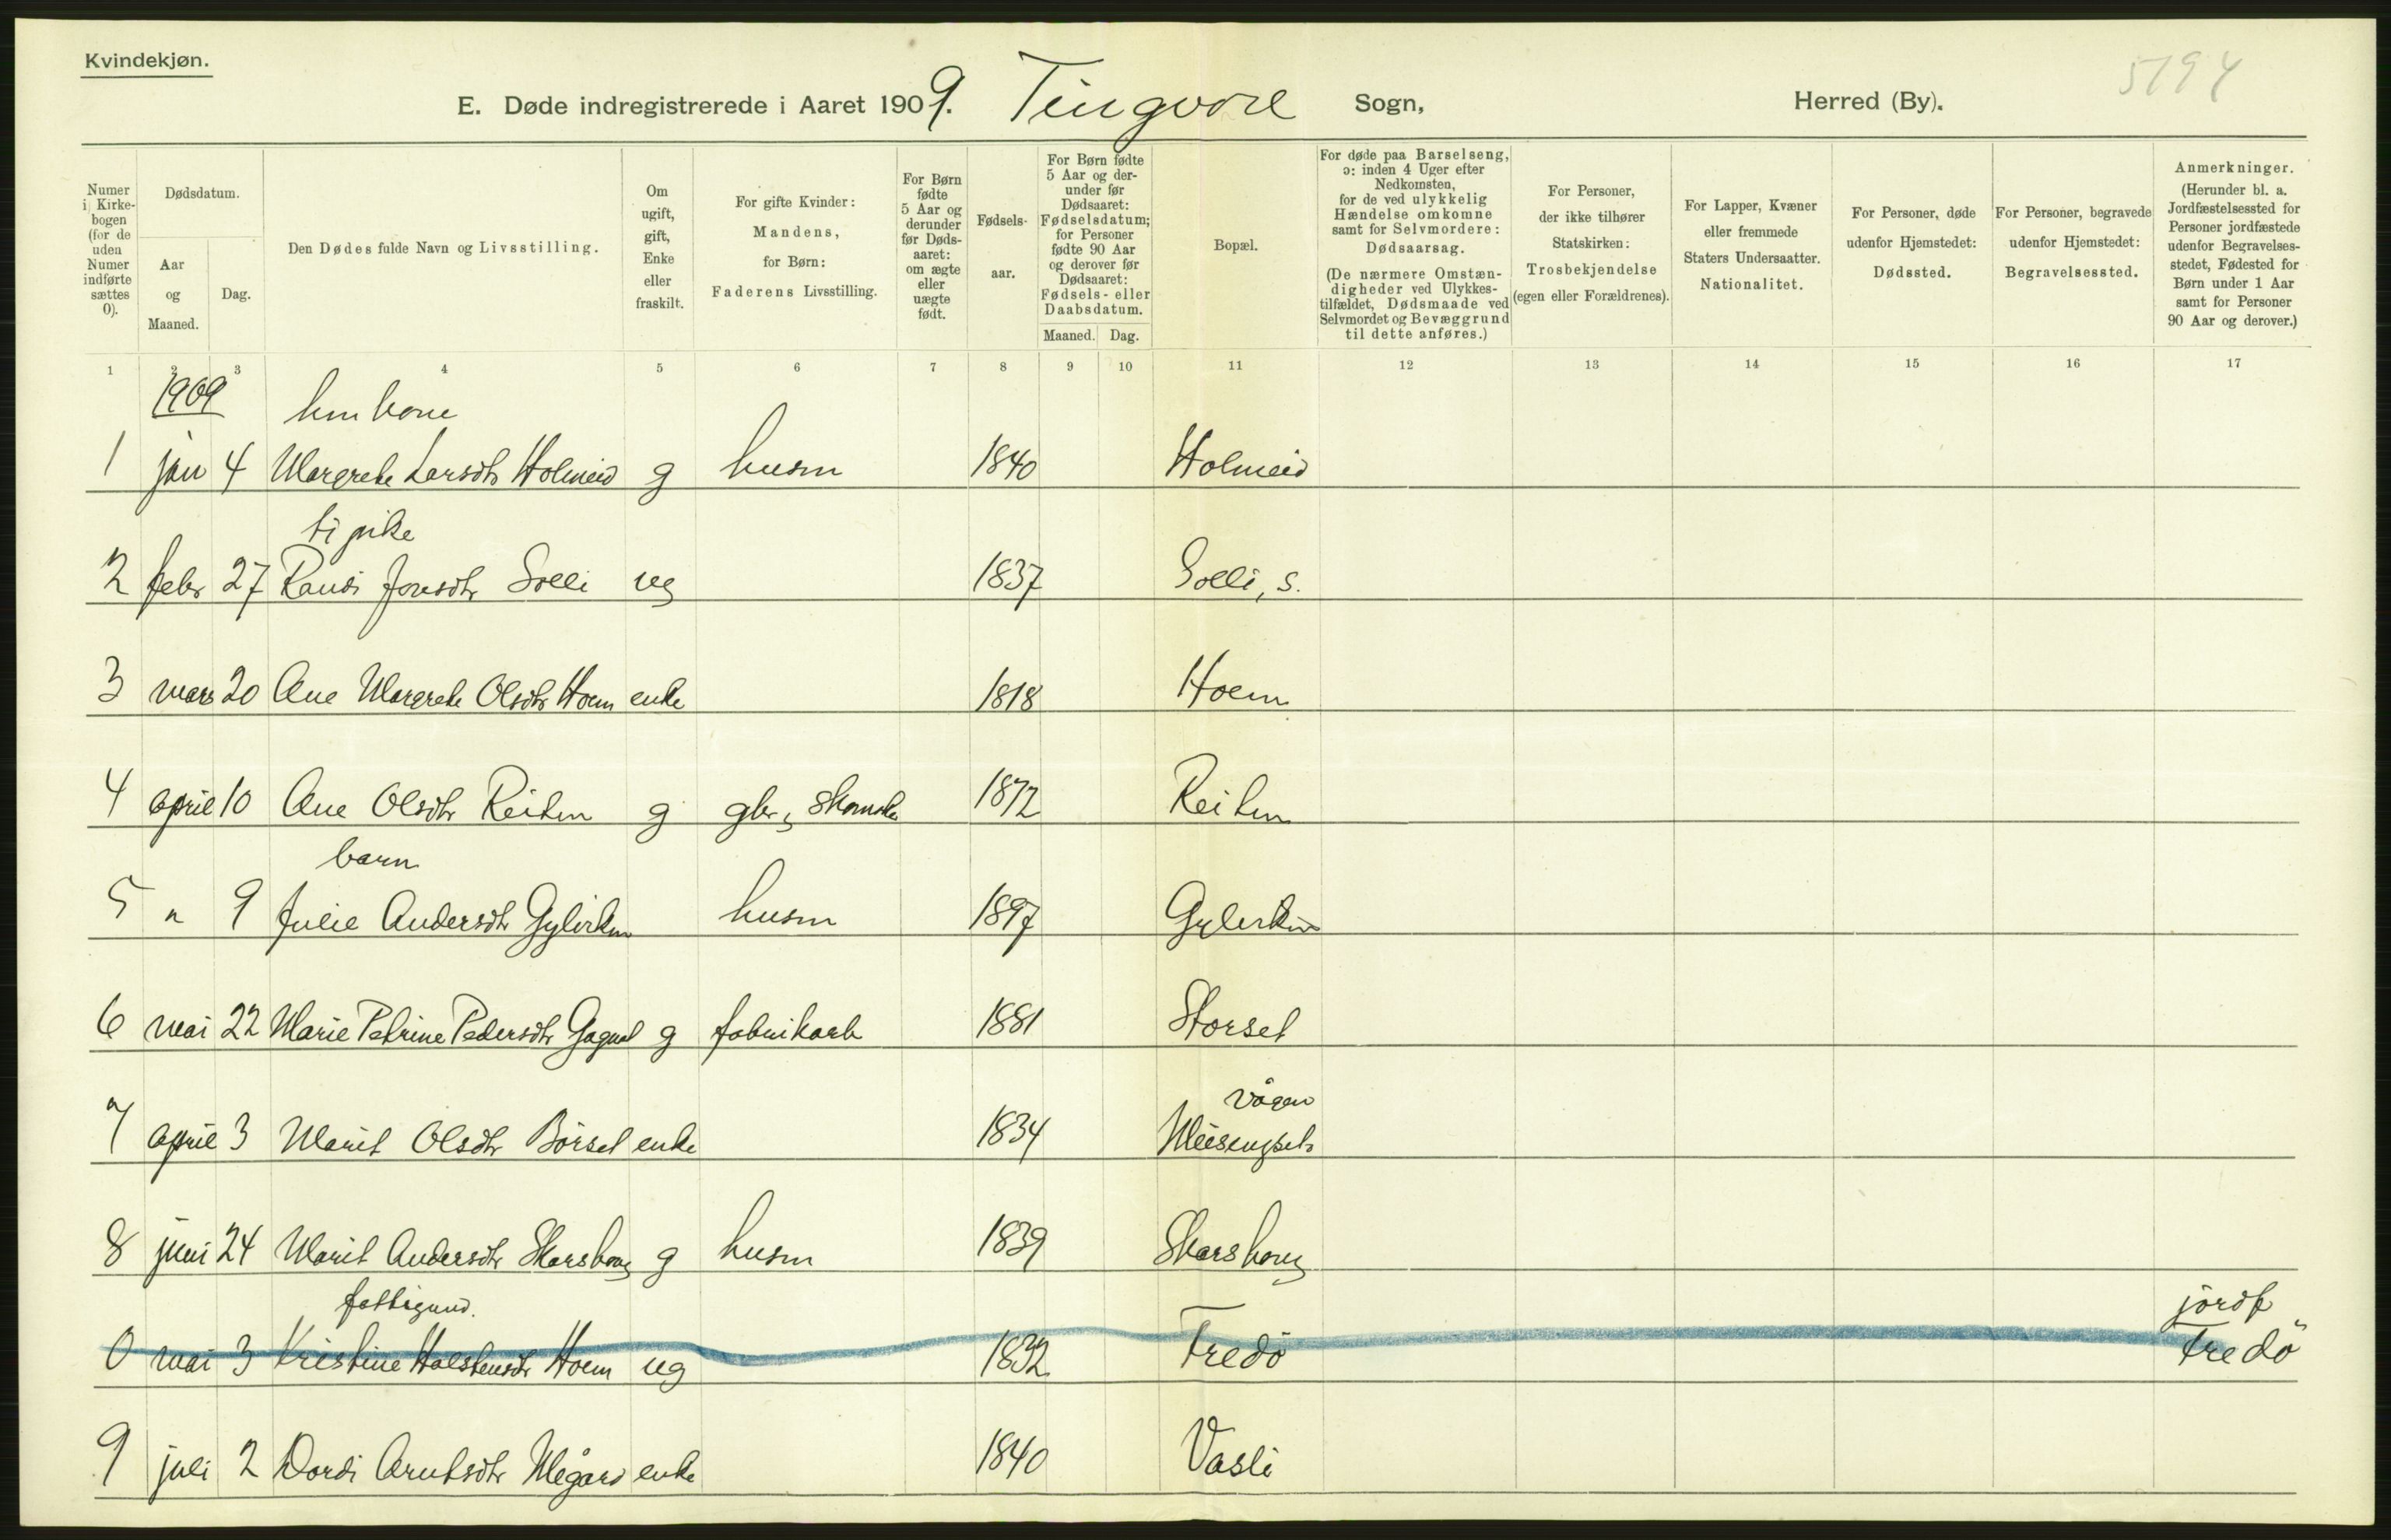 Kvindekjøn.
5194
E. Døde indregistrerede i Aaret 1909. Tingvoll Sogn, Herred (By).
Numer i Kirke-bogen (for de uden Numer indførte sættes 0).
Dødsdatum.
Aar og Maaned.
Dag.
Den Dødes fulde Navn og Livsstilling.
Om ugift, gift, Enke eller fraskilt.
For gifte Kvinder: Mandens, for Børn: Faderens Livsstilling.
For Børn fødte 5 Aar og derunder før Døds-aaret: om ægte eller uægte født.
Fødsels-aar.
For Børn fødte 5 Aar og der-under før Dødsaaret: Fødselsdatum; for Personer fødte 90 Aar og derover før Dødsaaret: Fødsels- eller Daabsdatum.
Maaned. Dag.
Bopæl.
For døde paa Barselseng, ɔ: inden 4 Uger efter Nedkomsten, for de ved ulykkelig Hændelse omkomne samt for Selvmordere: Dødsaarsag.
(De nærmere Omstæn-digheder ved Ulykkes-tilfældet, Dødsmaade ved Selvmordet og Bevæggrund til dette anføres.)
For Personer, der ikke tilhører Statskirken: Trosbekjendelse (egen eller Forældrenes).
For Lapper, Kvæner eller fremmede Staters Undersaatter. Nationalitet.
For Personer, døde udenfor Hjemstedet: Dødssted.
For Personer, begravede udenfor Hjemstedet: Begravelsessted.
Anmerkninger.
(Herunder bl. a. Jordfæstelsessted for Personer jordfæstede udenfor Begravelses-stedet, Fødested for Børn under 1 Aar samt for Personer 90 Aar og derover.)
1 2 3 4 5 6 7 8 9 10 11 12 13 14 15 16 17
1909
1 jan 4 Margrete Larsdtr Holmeid g husm 1840 Holmeid
ti pike
2 febr 27 Randi Jonsdtr Solli ug 1837 Solli, s.
3 mars 20 Ane Margrete Olsdtr Hoem enke 1818 Hoem
4 april 10 Ane Olsdtr Reiten g gbr, 1872 Reiten
barn
5 " 9 Julie Andersdtr husm 1897
6 mai 22 Marie Petrine Pedersdtr g fabrikarb 1881 Storset
vågen
7 april 3 Marit Olsdtr Börset enke 1834 Meisingset
8 juni 24 Marit Andersdtr Skarshaug g husm 1839 Skarshaug
fattigund. jordf
0 mai 3 Kristine Holstensdtr Hoem ug 1832 Fredö Fredö
9 juli 2 Dordi Arntsdtr Megård enke 1840 Vasli